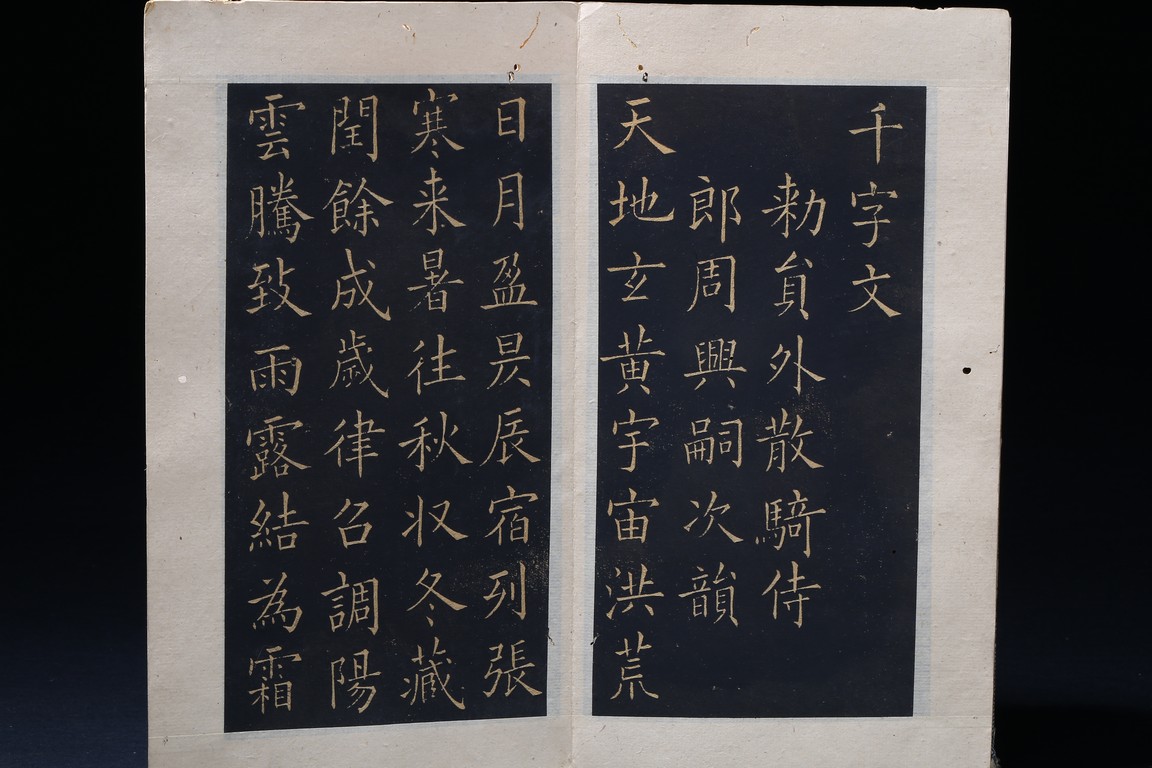 千字文
勑貟外散騎侍
郎周興嗣次韻
天地玄黃宇宙洪荒
日月盈昃辰宿列張
寒来暑往秋収冬藏
閏餘成歲律召調陽
雲騰致雨露結為霜